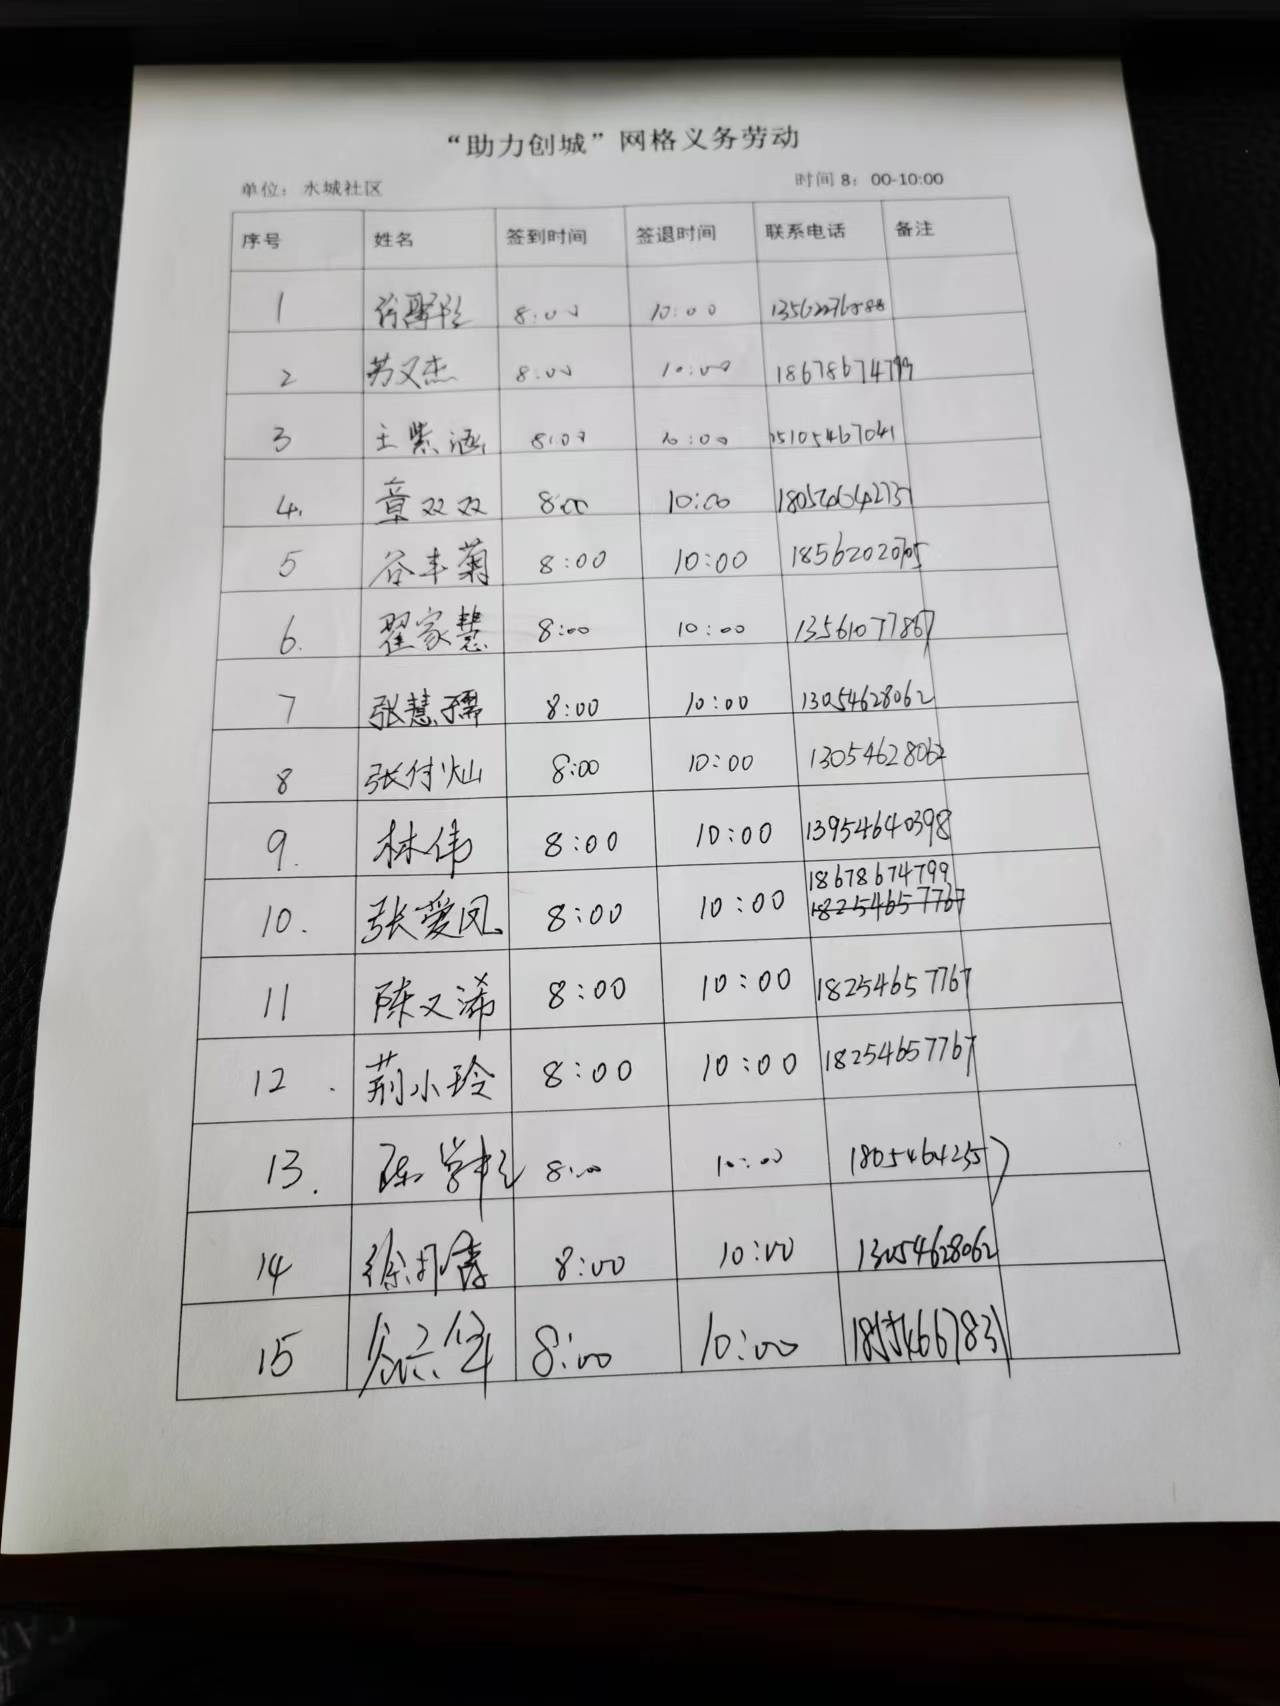 “助力创城”网格义务劳动
单位：水城社区 时间 8：00-10:00
序号 姓名 签到时间 签退时间 联系电话 备注
1 8:00 10:00
2 苏又杰 8:00 10:00 18678674799
3 王紫涵 8:00 10:00 15105467041
4. 章双双 8:00 10:00
5 谷丰菊 8:00 10:00
6. 翟家慧 8:00 10:00 13561077867
7 张慧孺 8:00 10:00 13054628062
8 张付灿 8:00 10:00 13054628062
9. 林伟 8:00 10:00 13954640398
10. 张爱凤 8:00 10:00 18678674799
18254657767
11 陈又浠 8:00 10:00 18254657767
12. 荆小玲 8:00 10:00 18254657767
13. 陈 8:00 10:00
14 徐 8:00 10:00 13054628062
15 8:00 10:00